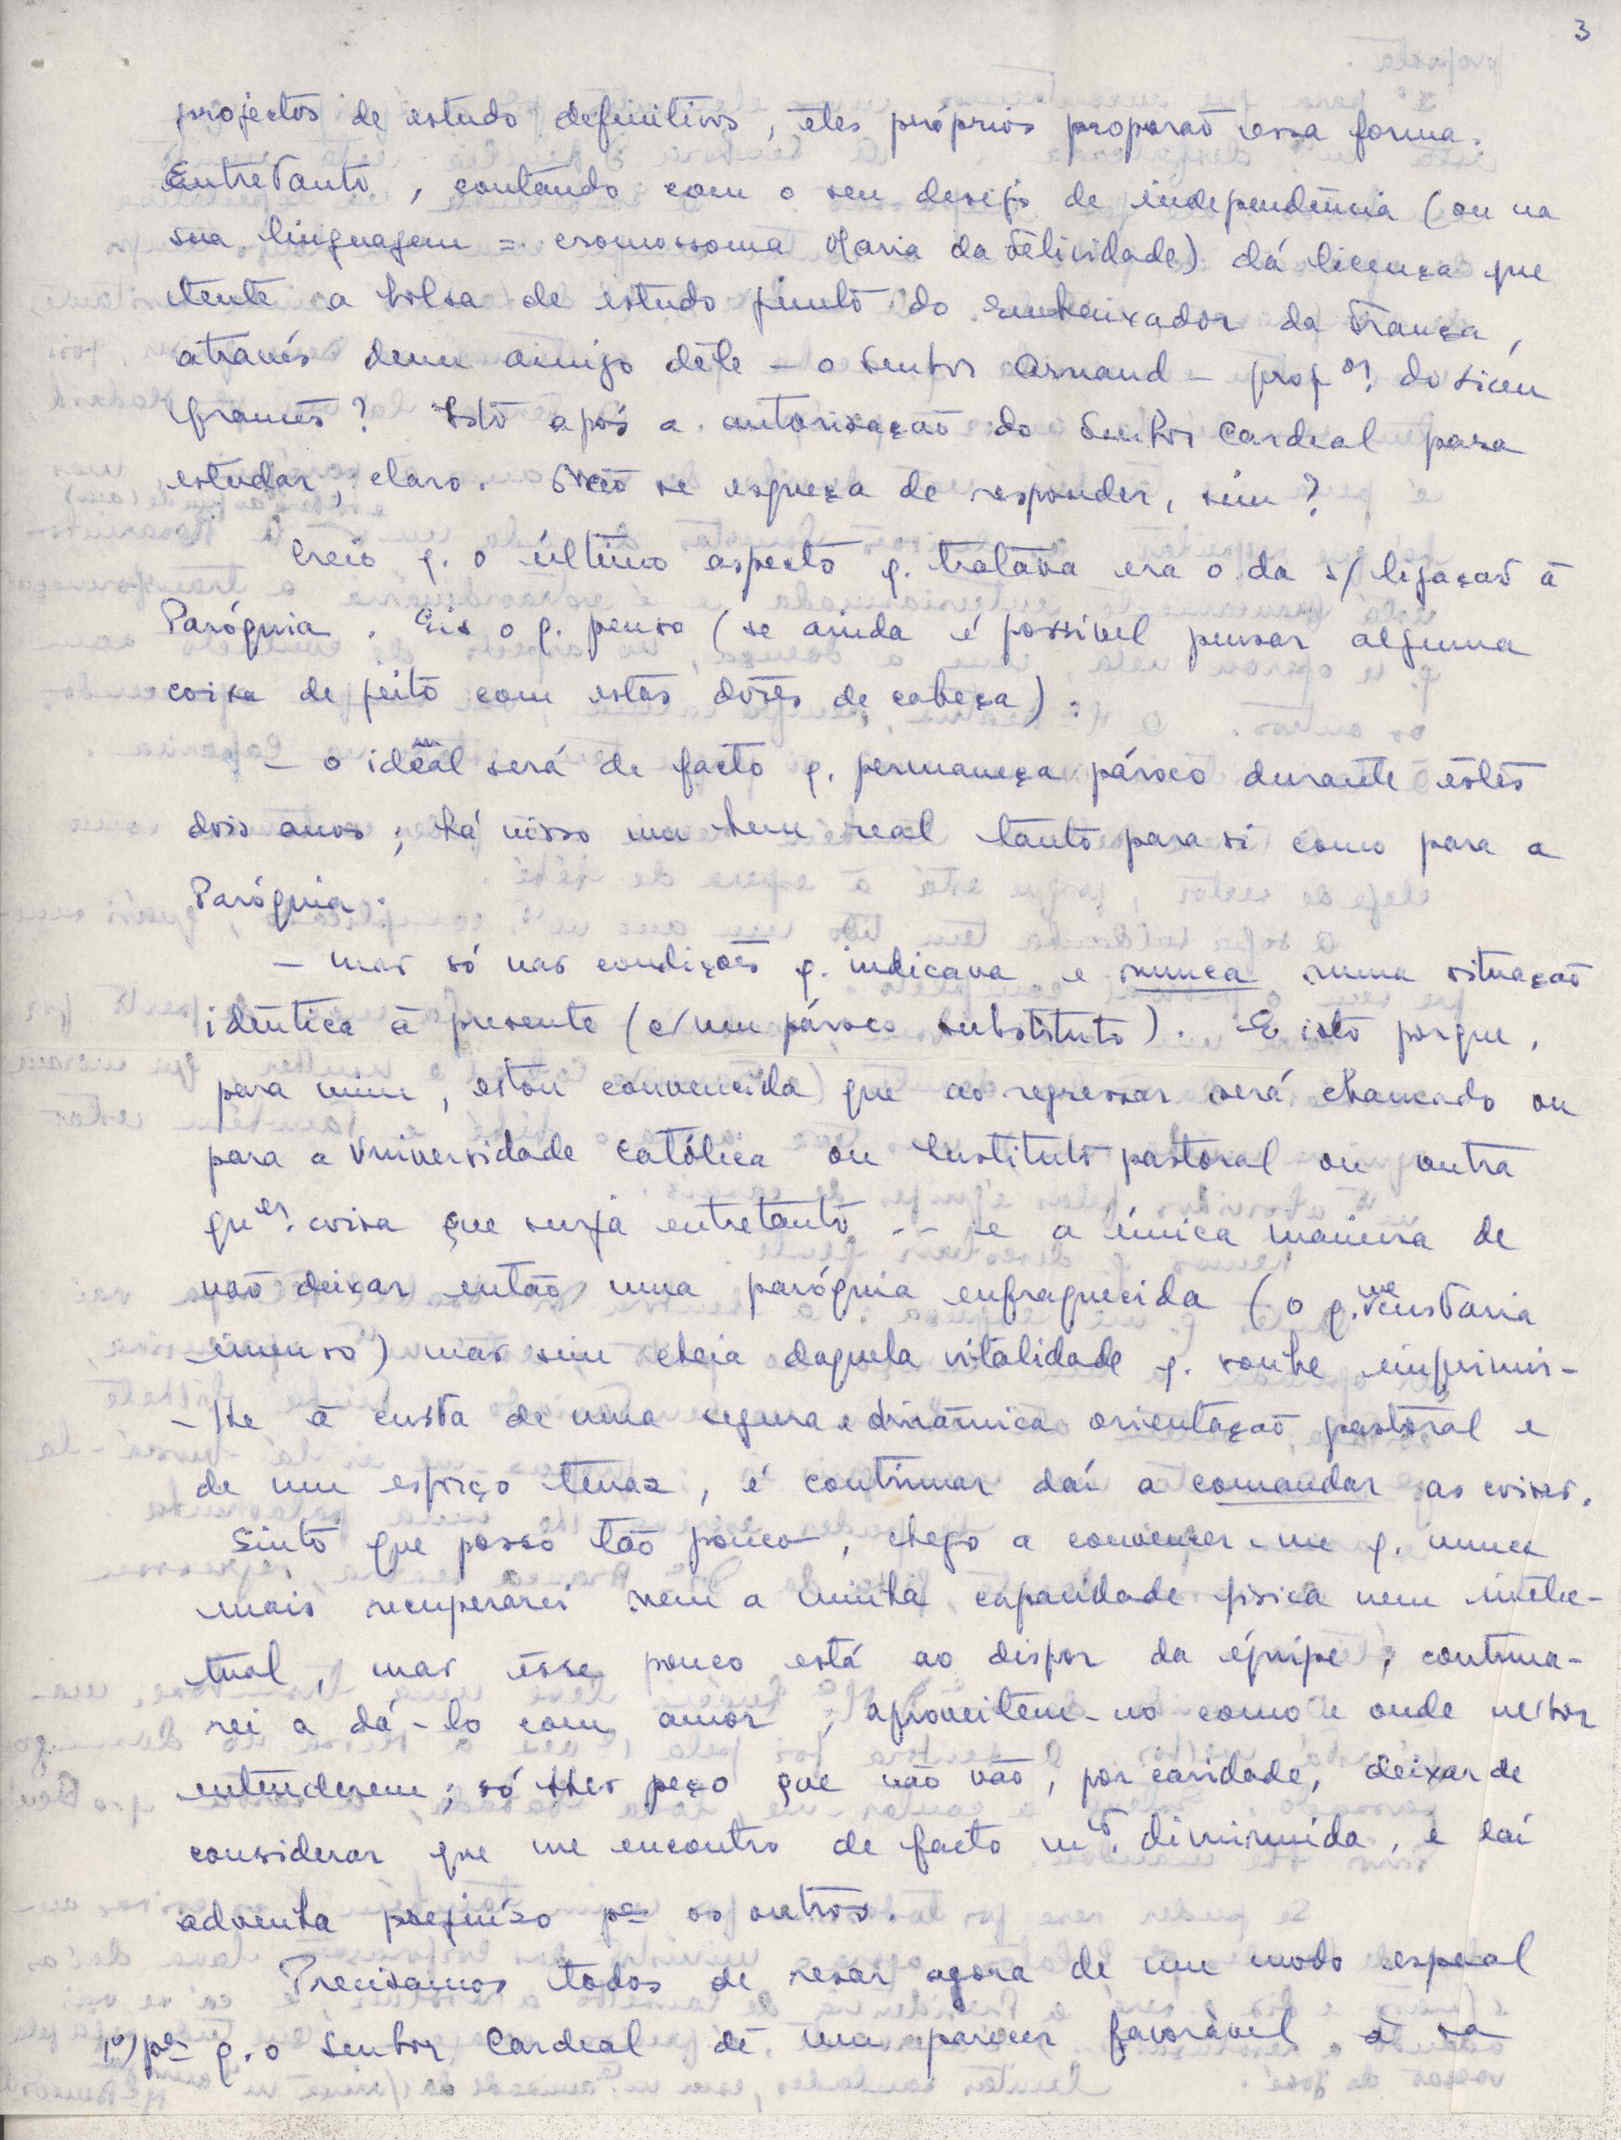 3
projectos de estudo definitivos, êles próprios proporão essa forma.
Entretanto, contando com o seu desejo de independência (ou na
sua linguagem = cromossoma Maria da Felicidade) dá licença que
tente a bolsa de estudo junto do Embaixador da França,
através dum amigo dêle - o Senhor Arnaud - prof.or do Liceu
francês? Isto após a autorização do Senhor Cardeal para
estudar, claro. Não se esqueça de responder, sim?
Creio q. o último aspecto q. tratava era o da s/ ligação à
Paróquia. Eis o q. penso (se ainda é possível pensar alguma
coisa de jeito com estas dores de cabeça):
- o ideal será de facto q. permaneça pároco durante êstes
dois anos; há nisso um bem real tanto para si como para a
Paróquia.
- mas só nas condições q. indicava e nunca numa situação
idêntica à presente (c/ um pároco substituto). E isto porque,
para mim, estou convencida que ao regressar será chamado ou
para a Universidade Católica ou Instituto pastoral ou outra
qu.er coisa que surja entretanto -- e a única maneira de
não deixar então uma paróquia enfraquecida (o q. me custaria
imenso) mas sim cheia daquela vitalidade q. soube imprimir-
-lhe à custa de uma segura e dinâmica orientação pastoral e
de um esforço tenaz, é continuar daí a comandar as coisas.
Sinto que posso tão pouco, chego a convencer-me q. nunca
mais recuperarei nem a minha capacidade física nem intelec-
tual, mas êsse pouco está ao dispor da équipe; continua-
rei a dá-lo com amor, aproveitem-no como e onde melhor
entenderem; só lhes peço que não vão, por caridade, deixar de
considerar que me encontro de facto m.to diminuída, e daí
advenha prejuízo p.a os outros.
Precisamos todos de rezar agora de um modo especial
1º) p.a q. o Senhor Cardeal dê um parecer favorável à sa